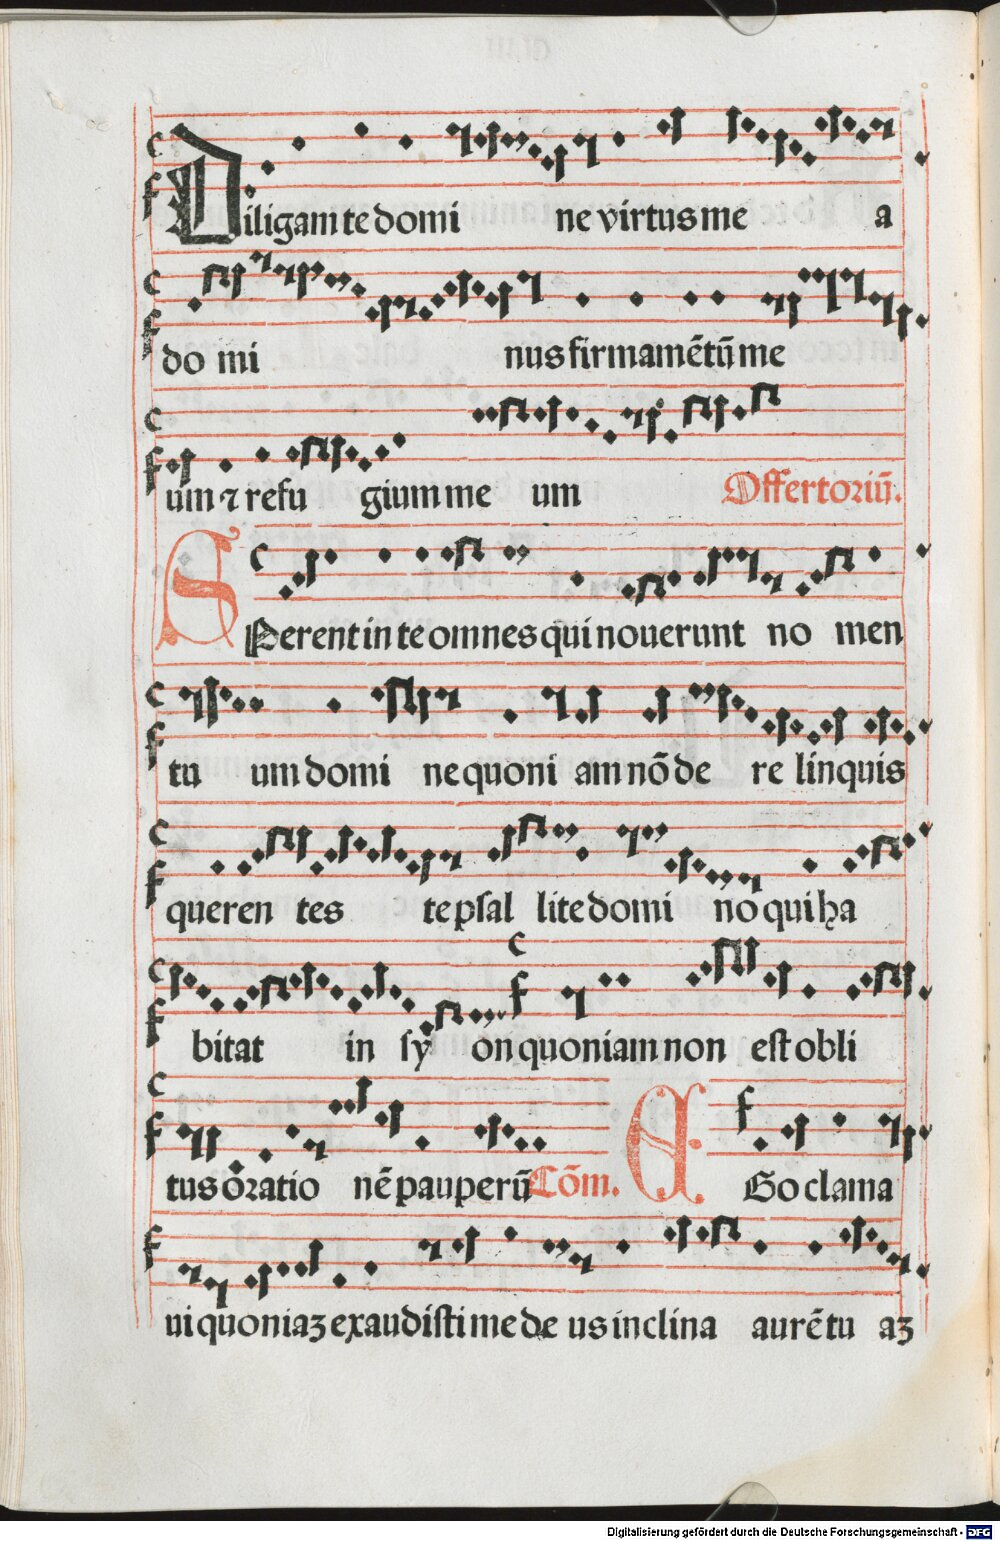 Diligam te domi ne virtus me a
do mi nus firmamētū me
um ⁊ refu gium me um Offertoriū.
SPerent in te omnes qui nouerunt no men
tu um domi ne quoni am nō de re linquis
queren tes te psal lite domi no qui ha
bitat in sy on quoniam non est obli
tus oratio nē pauperū Cōm. EGo clama
ui quoniaʒ exaudisti me de us inclina aurē tu aʒ
Digitalisierung gefördert durch die Deutsche Forschungsgemeinschaft - DFG